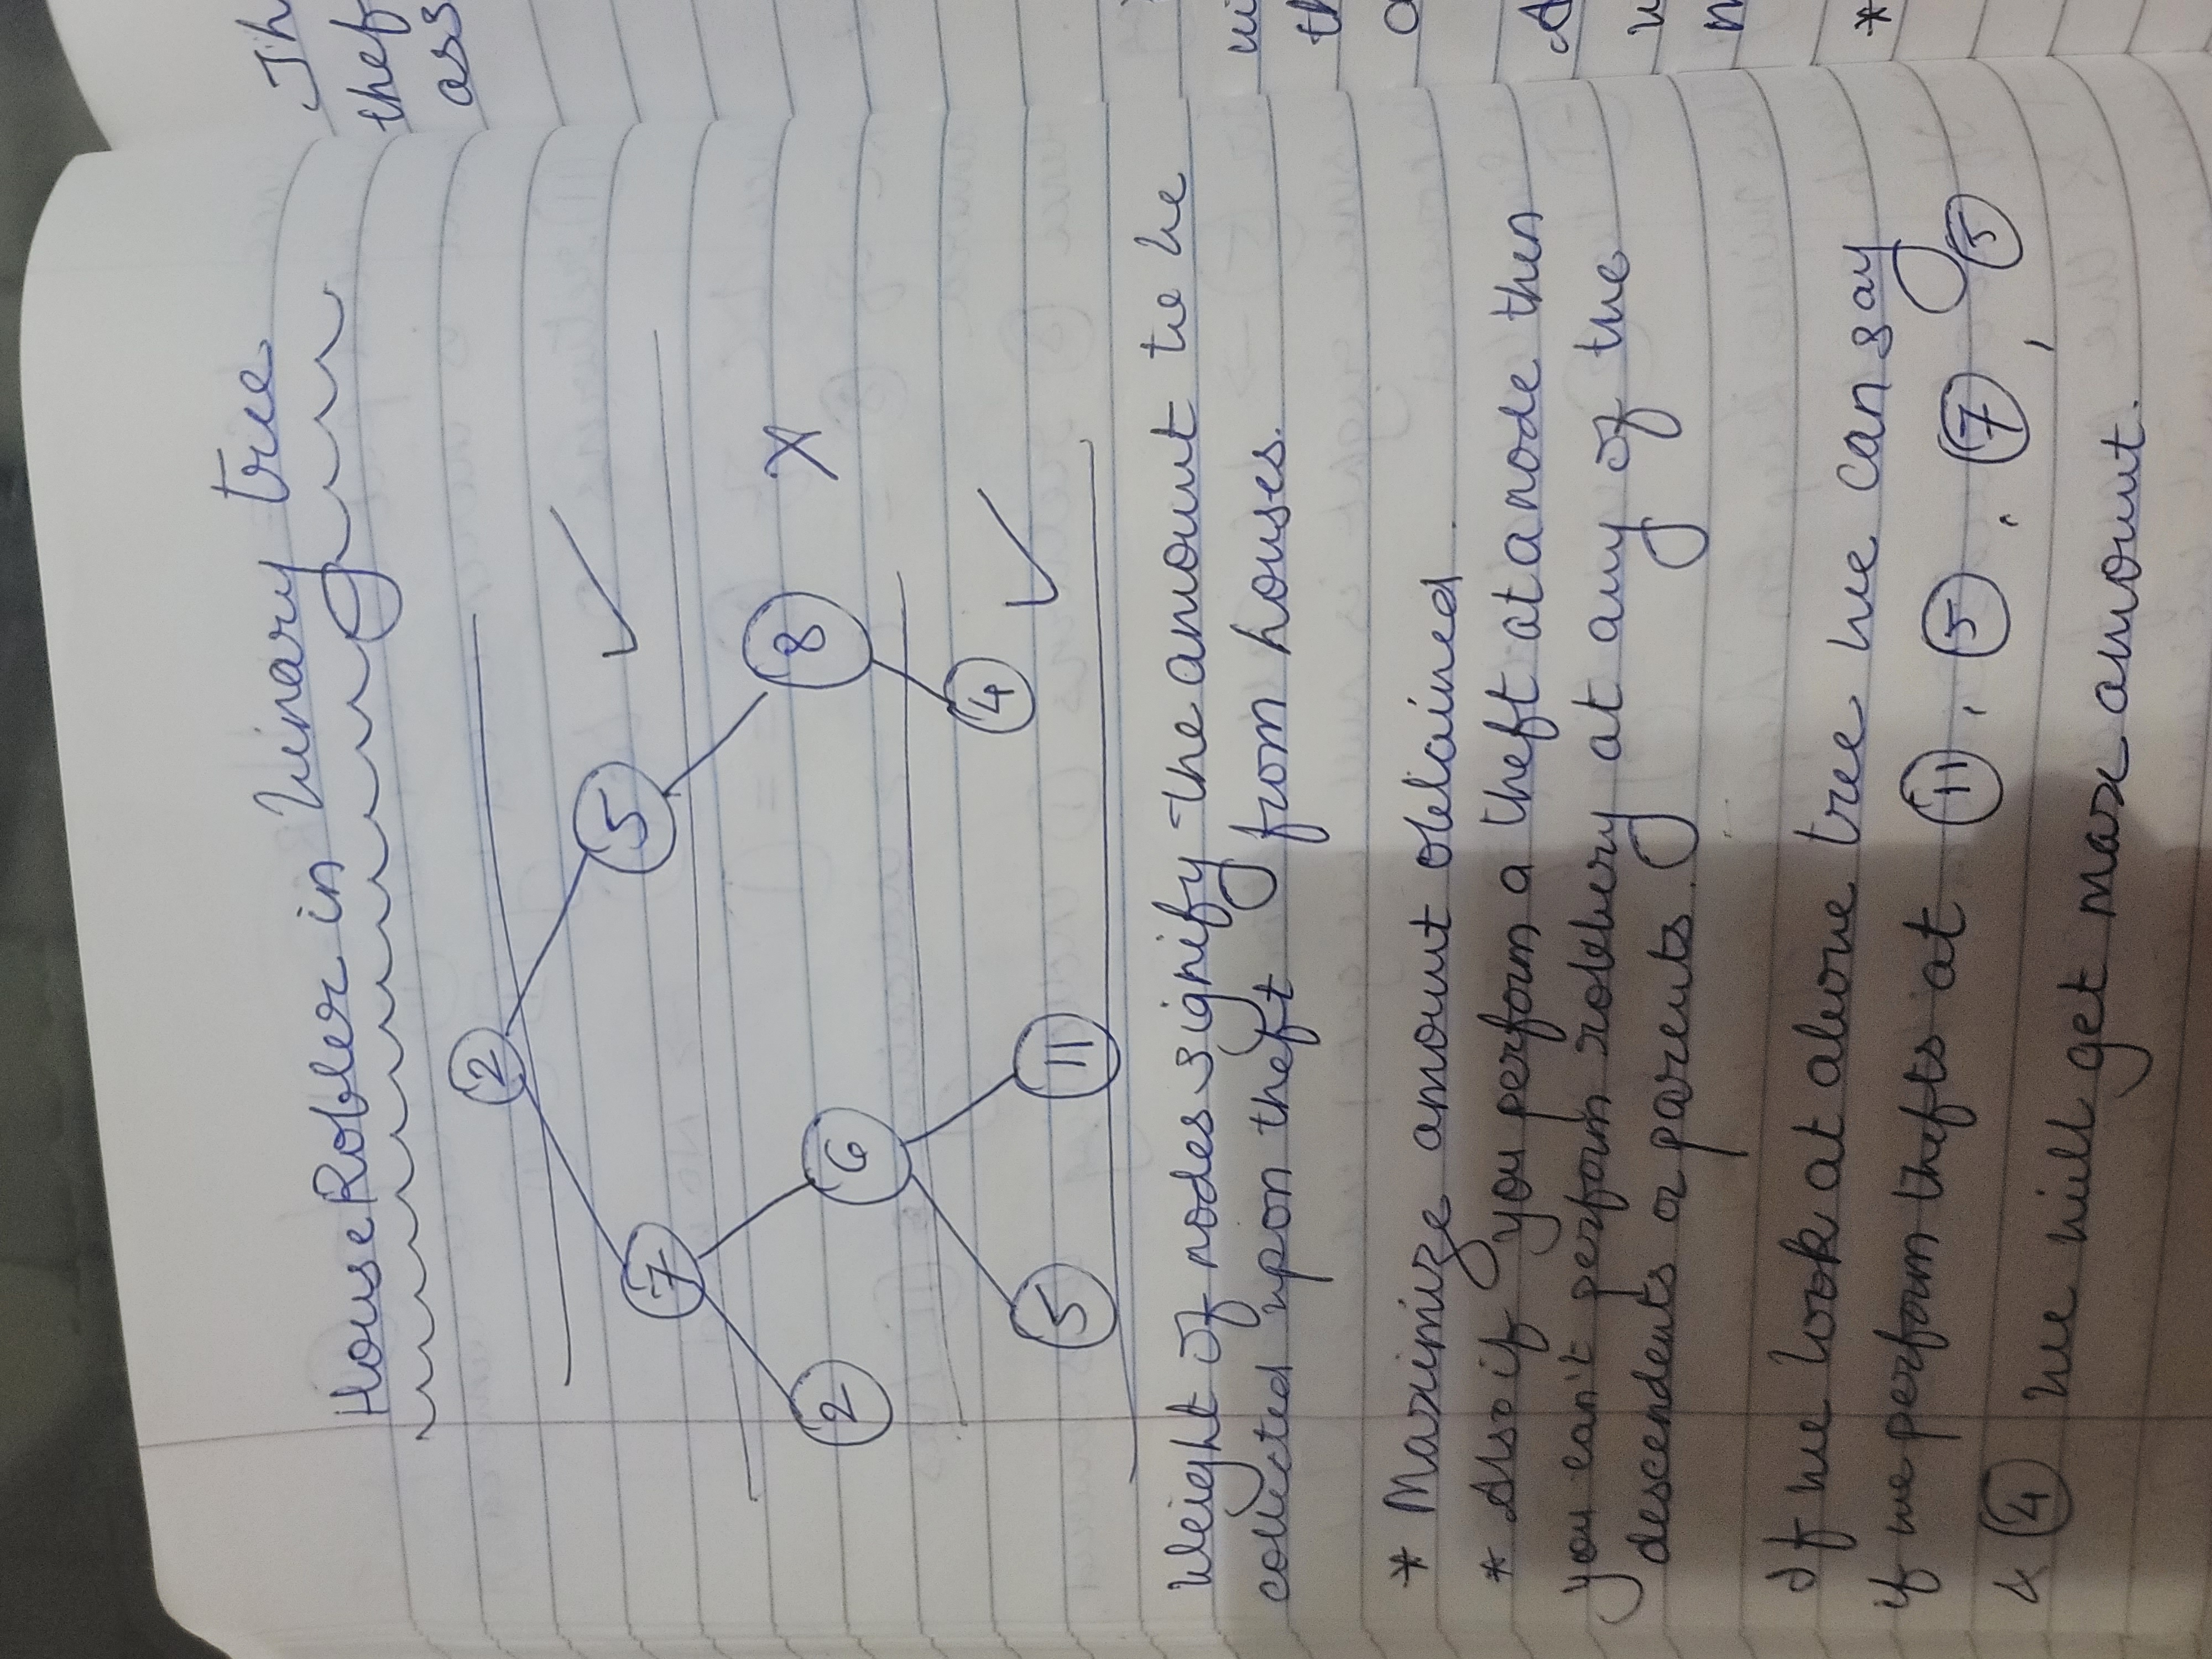 House Robber in binary tree
2
5
7
2
6
8
X
4
5
11
Weight of nodes signify the amount to be
collected upon theft from houses.
* Maximize amount obtained.
* Also if you perform a theft at a node then
you can't perform robbery at any of the
descendents or parents.
If we look at above tree we can say
if we perform thefts at 11, 5, 7, 5
& 4 we will get max amount.
Th
thef
ass